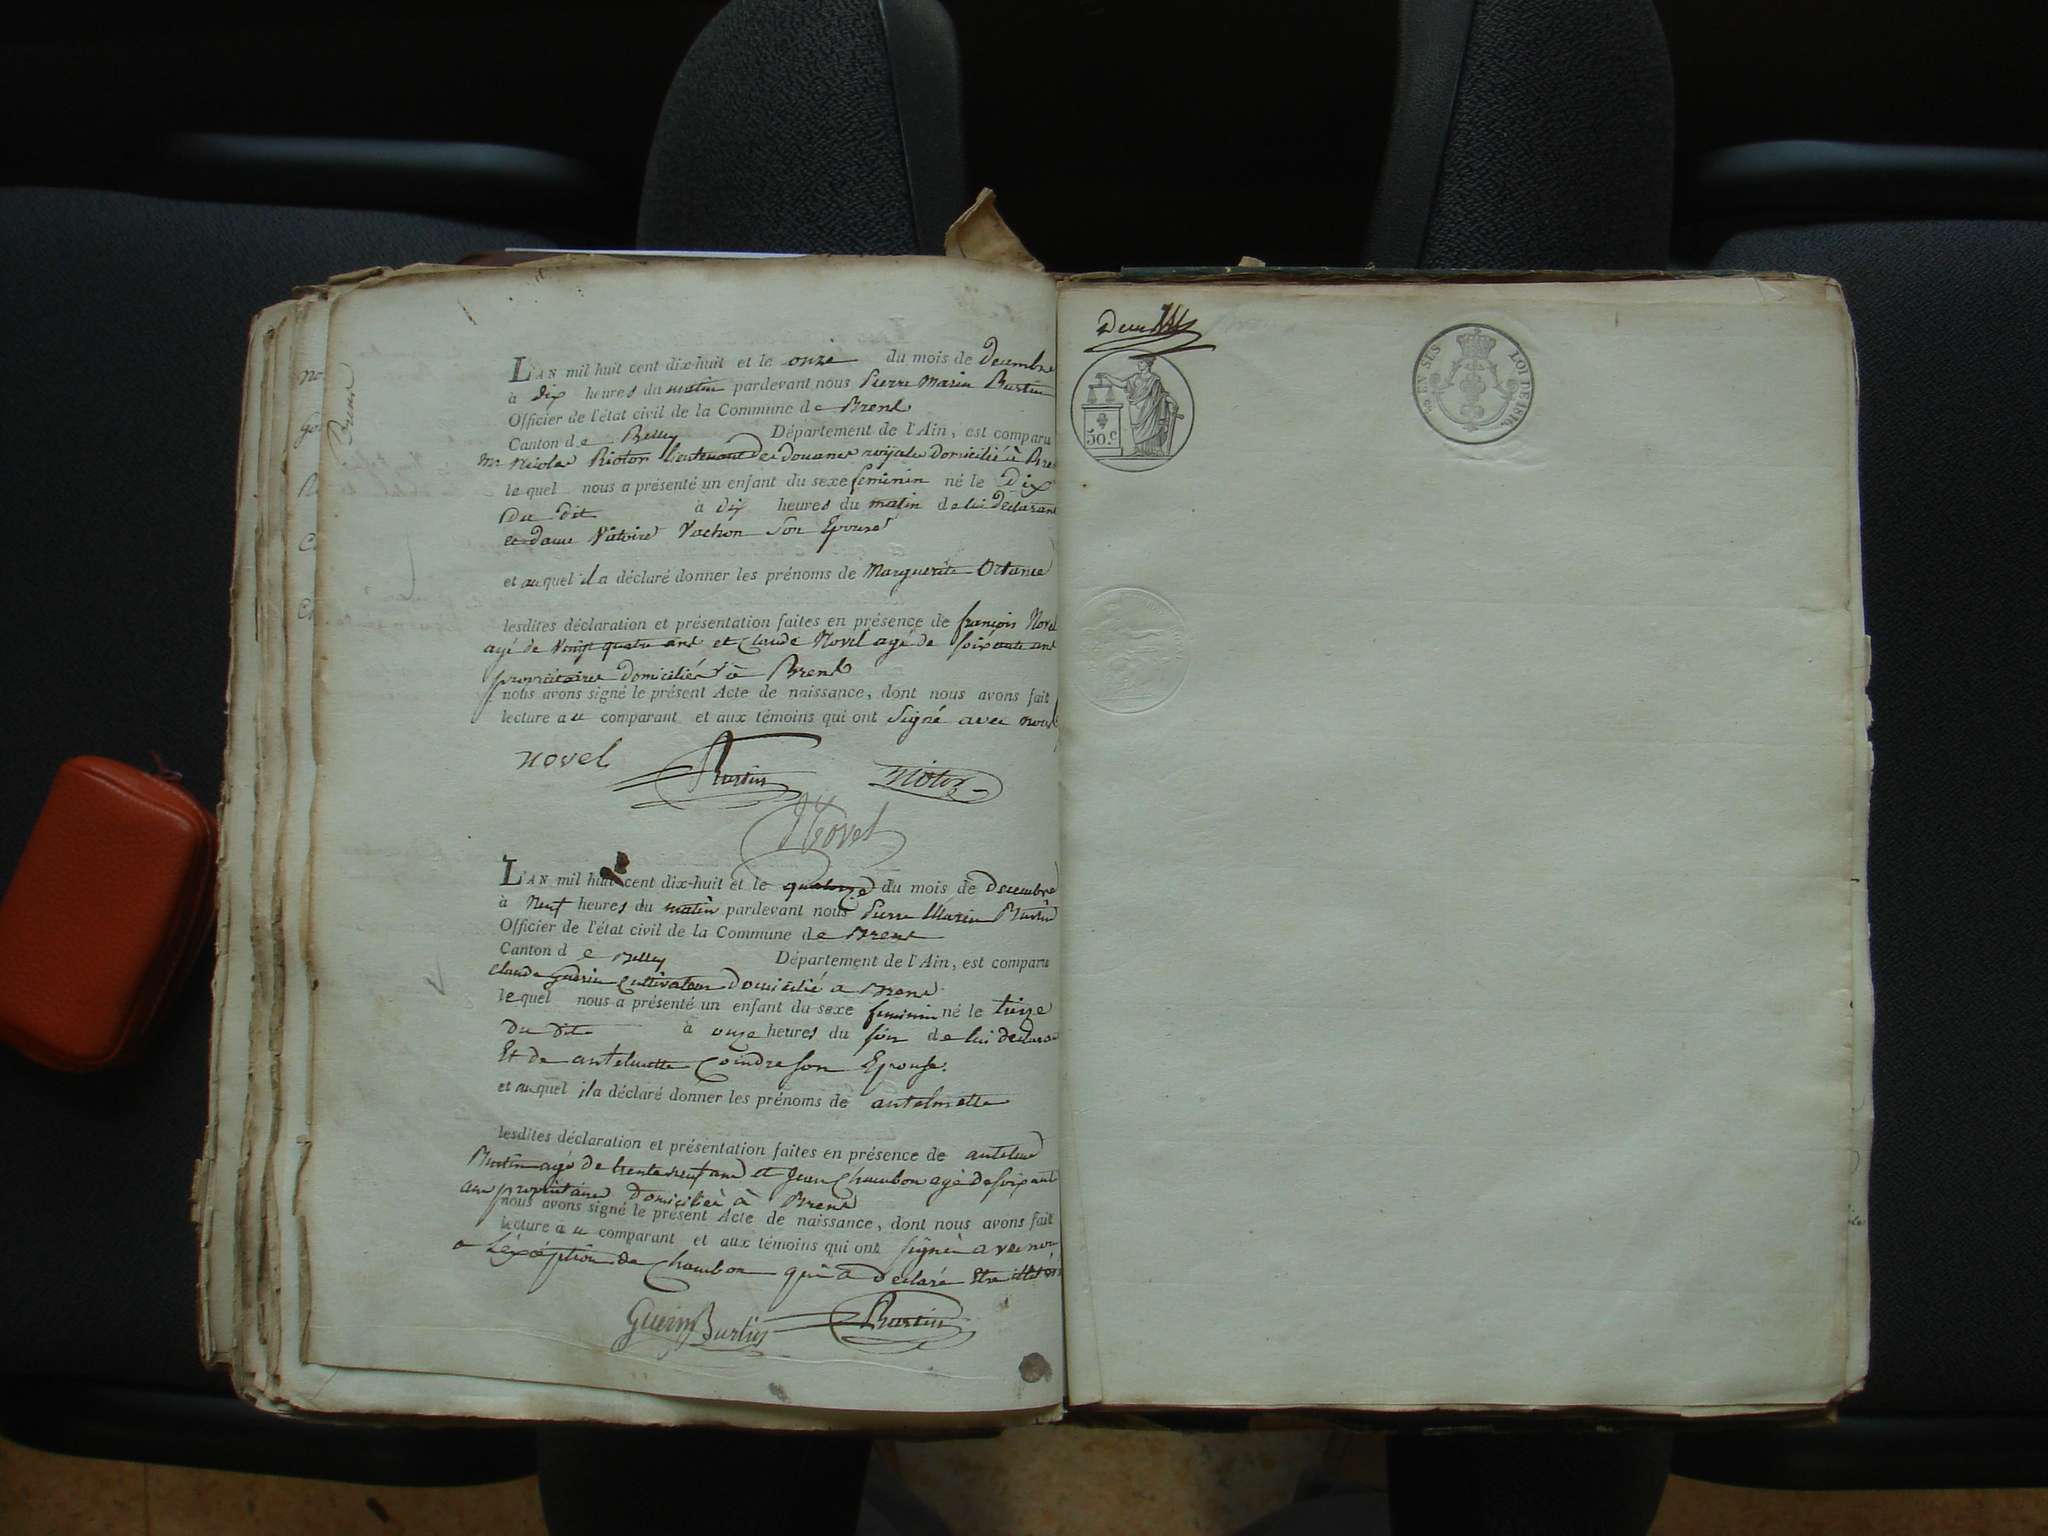 L'AN mil huit cent dix-huit et le onze du mois de decembre
à dix heures du matin pardevant nous Pierre Marin Burtin
Officier de l'état civil de la Commune de Brens
Canton de Belley Département de l'Ain, est comparu
Mr Nicolas Rioton lieutenant des douanes royales domicilié à Bre
le quel nous a présenté un enfant du sexe feminin né le Dix
Du dit à dix heures du matin de lui declarant
et dame Victoire Vachon Son Epouse
et auquel il a déclaré donner les prénoms de Marguerite Ortance
lesdites déclaration et présentation faites en présence de françois Novel
agé de Vingt quatre ans et Claude Novel agé de soixante ans
propriétaires domiciliés à Brens
nous avons signé le présent Acte de naissance, dont nous avons fait
lecture au comparant et aux témoins qui ont signé avec nous
novel Burtin
Novel
L'AN mil huit cent dix-huit et le quatorze du mois de decembre
à Neuf heures du matin pardevant nous Pierre Marin Burtin
Officier de l'état civil de la Commune de Brens
Canton de Belley Département de l'Ain, est comparu
Claude Guerin Cultivateur domicilié a Brens
le quel nous a présenté un enfant du sexe feminin né le treize
du dit à onze heures du soir de lui declara
Et de antelmette Coindre son Epouse.
et auquel il a déclaré donner les prénoms de antelmette
lesdites déclaration et présentation faites en présence de antelme
Burtin agé de trente neuf ans et Jean Chambon agé de soixante
ans propriétaires domiciliés à Brens
nous avons signé le présent Acte de naissance, dont nous avons fait
lecture au comparant et aux témoins qui ont signé avec nou
a l'éxcéption de Chambon qui a declaré Etre
Guerin Burtin Burtin
Brens
50.c
EN SUS LOI DE 1816.